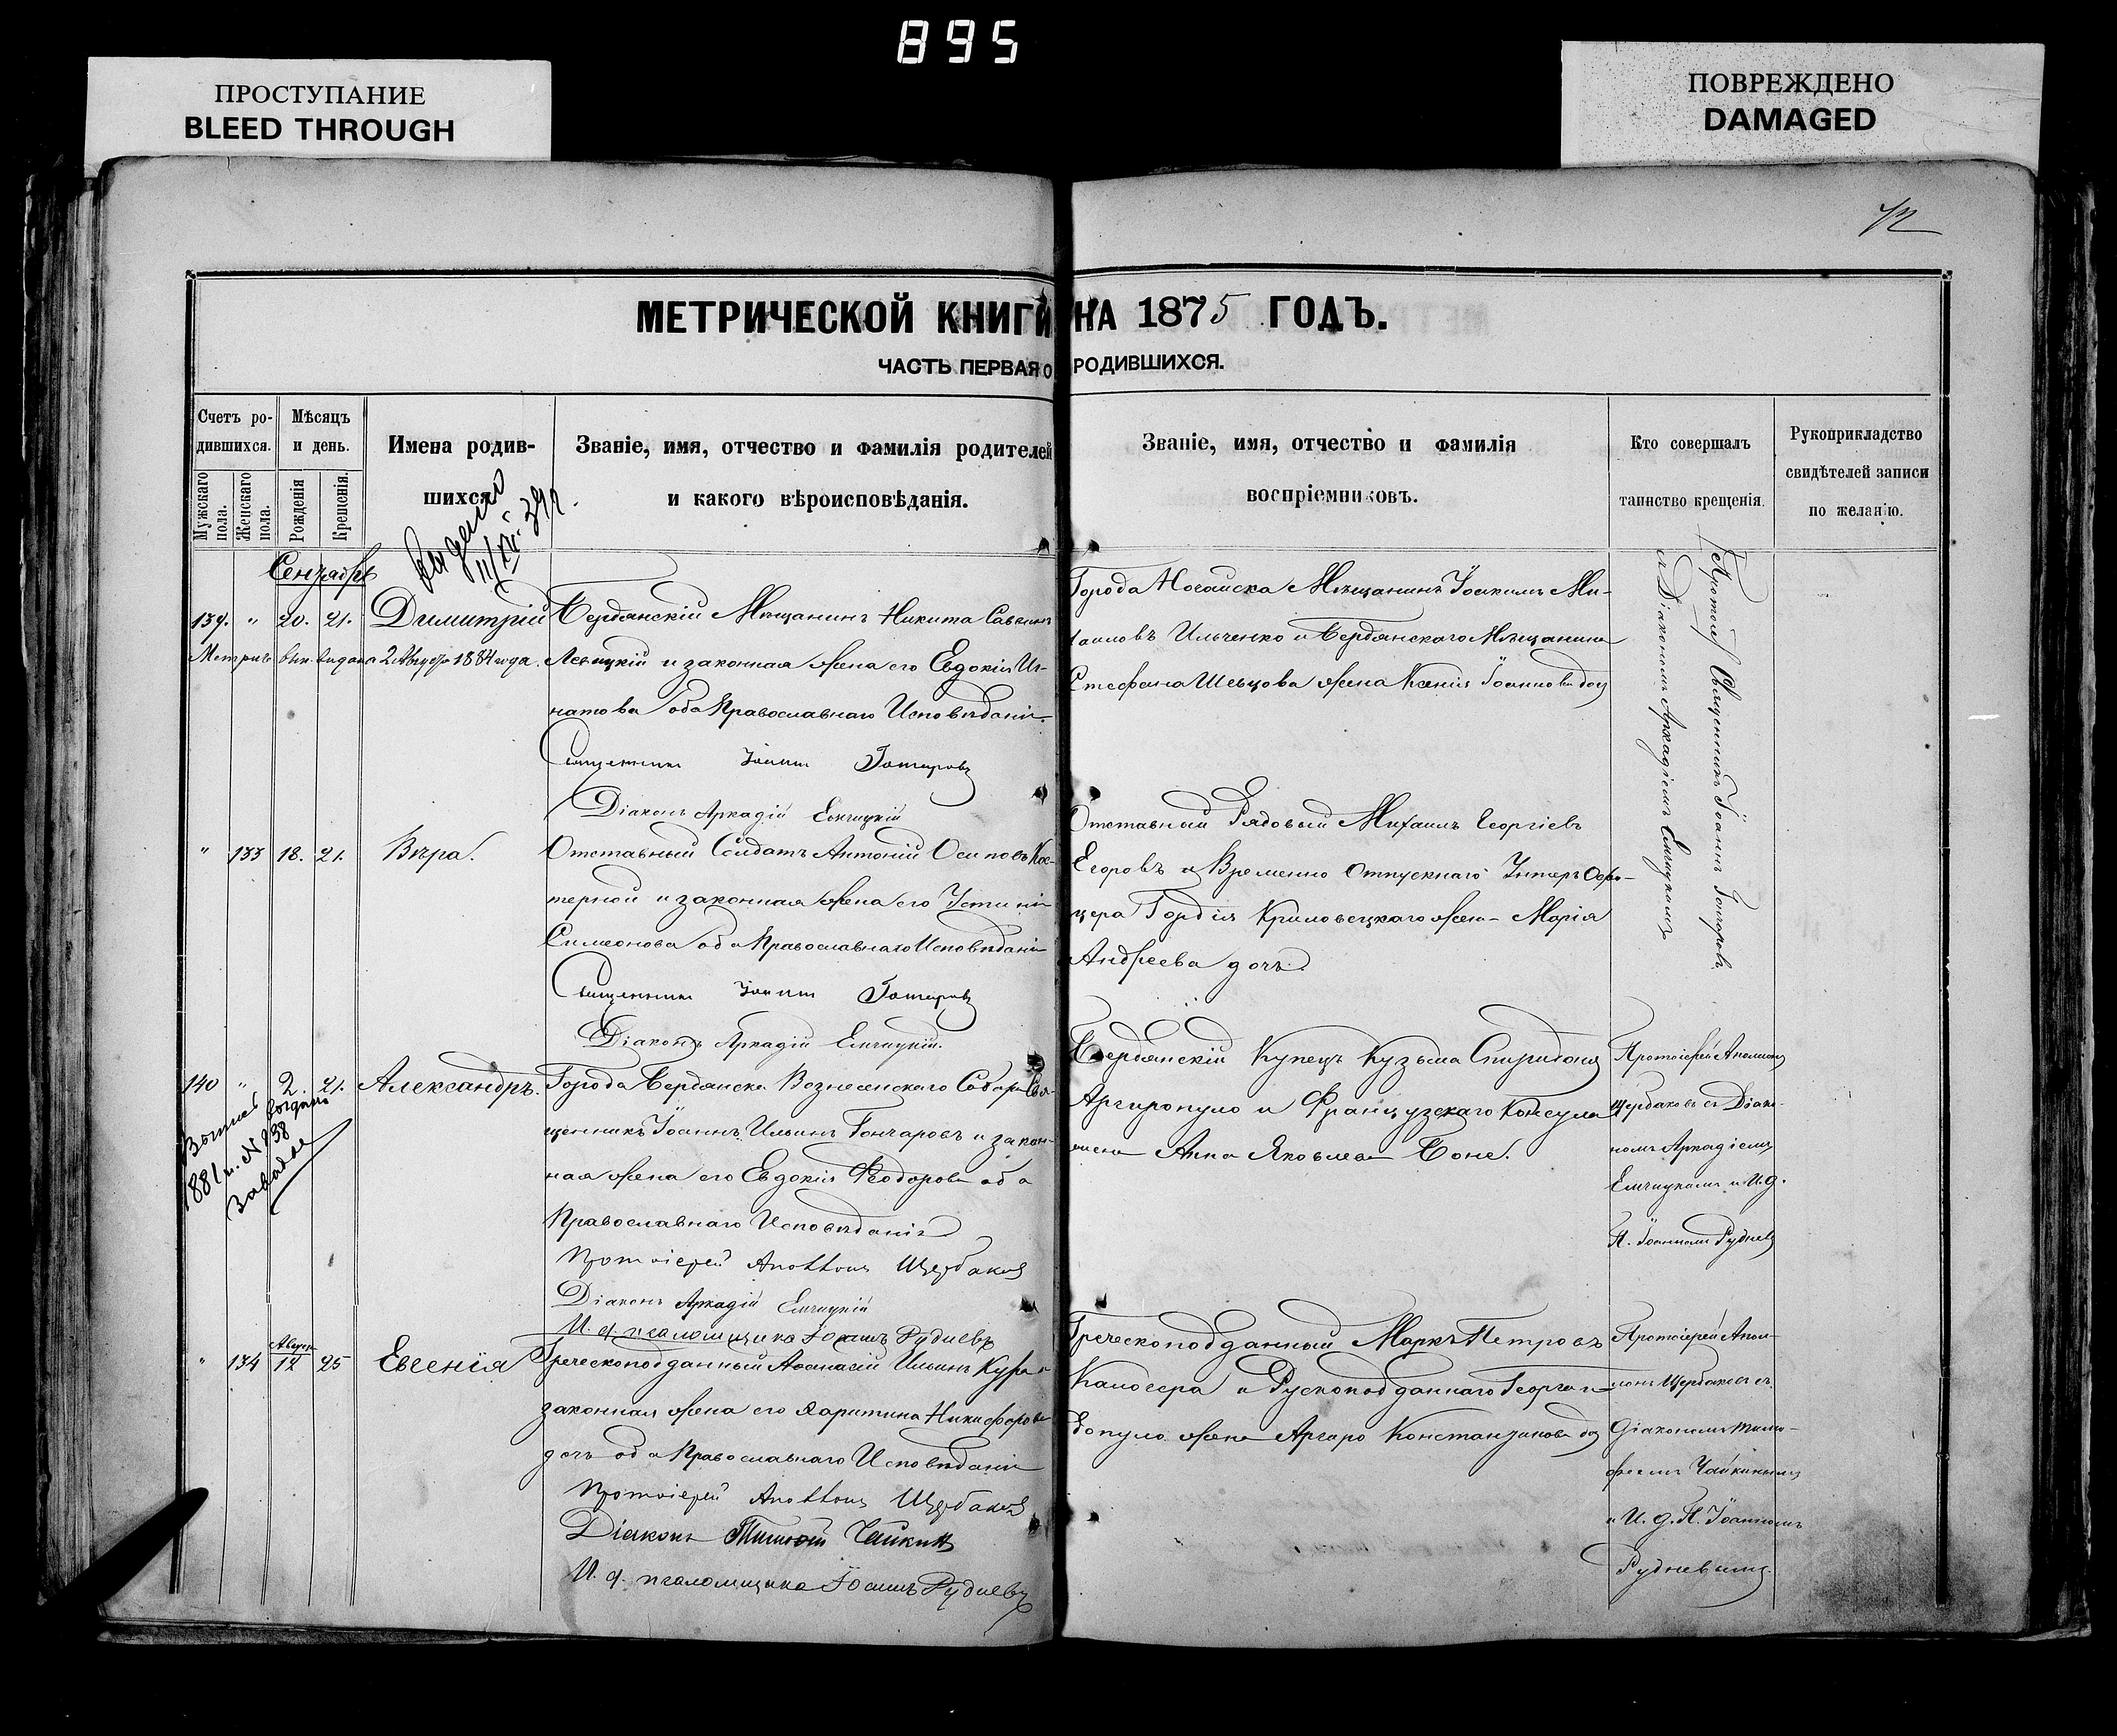 895
ПРОСТУПАНИЕ
BLEED THROUGH
ПОВРЕЖДЕНО
DAMAGED
МЕТРИЧЕСКОЙ КНИГИ НА 1875 ГОДЪ.
ЧАСТЬ ПЕРВАЯ О РОДИВШИХСЯ.
Счетъ ро-
дившихся.
Мужскаго пола.
Женскаго пола.
Мѣсяцъ
и день.
Рожденія
Крещенія.
Имена родив-
шихся.
Званіе, имя, отчество и фамилія родителей
и какого вѣроисповѣданія.
Званіе, имя, отчество и фамилія
воспріемниковъ.
Кто совершалъ
таинство крещенія.
Рукоприкладство
свидѣтелей записи
по желанію.
Сентябрь
139. " 20. 21. Димитрій
Метрич. вып. выдана 2 Августа 1884 года.
Бердянскій Мѣщанинъ Никита Саввинъ
и законная жена его Евдокія Иг-
натова оба Православнаго Исповѣданія.
Священникъ Іоаннъ Гончаровъ
Діаконъ Аркадій Емчицкій
Города Ногайска Мѣщанинъ Іоакимъ Ми-
хаиловъ Ильченко и Бердянскаго Мѣщанина
Стефана Шевцова жена Ксенія Іоаннова дочь
Священникъ Іоаннъ Гончаровъ
съ Діакономъ Аркадіемъ Емчицкимъ
" 133 18. 21. Вѣра.
Отставный Солдатъ Антоній Осиповъ Кос-
терной и законная жена его Устинія
Симеонова оба Православнаго Исповѣданія
Священникъ Іоаннъ Гончаровъ
Діаконъ Аркадій Емчицкій.
Отставный Рядовый Михаилъ Георгіевъ
Егоровъ и Временно Отпускнаго Унтеръ Офи-
цера Гордія жен- Марія
Андреева дочь.
140 " 2. 21. Александръ.
1881 г. № 938
Города Бердянска Вознесенскаго Собора Свя-
щенникъ Іоаннъ Ильинъ Гончаровъ и закон-
ная жена его Евдокія Ѳеодорова оба
Православнаго Исповѣданія
Протоіерей Аполлонъ Щербаковъ
Діаконъ Аркадій Емчицкій
И. д. псаломщика Іоаннъ Рудневъ
Бердянскій Купецъ Кузьма Спиридоновъ
Аргиропуло и Французскаго Консула
жена Анна Яковлева
Протоіерей Аполлонъ
Щербаковъ съ Діако-
номъ Аркадіемъ
Емчицкимъ и И. д.
П. Іоанномъ Рудневъ
" 134 12 25 Евгенія
Греческоподданный Аѳанасій Ильинъ и
законная жена его Харитина Никифорова
дочь оба Православнаго Исповѣданія
Протоіерей Аполлонъ Щербаковъ
Діаконъ Тимоѳей Чайкинъ
И. д. псаломщика Іоаннъ Рудневъ
Греческоподданный Маркъ Петровъ
и Рускоподданнаго
жена Аргаро Константинова дочь
Протоіерей Апол-
лонъ Щербаковъ съ
Діакономъ Тимо-
феемъ Чайкинымъ
и И. д. П. Іоанномъ
Рудневымъ.